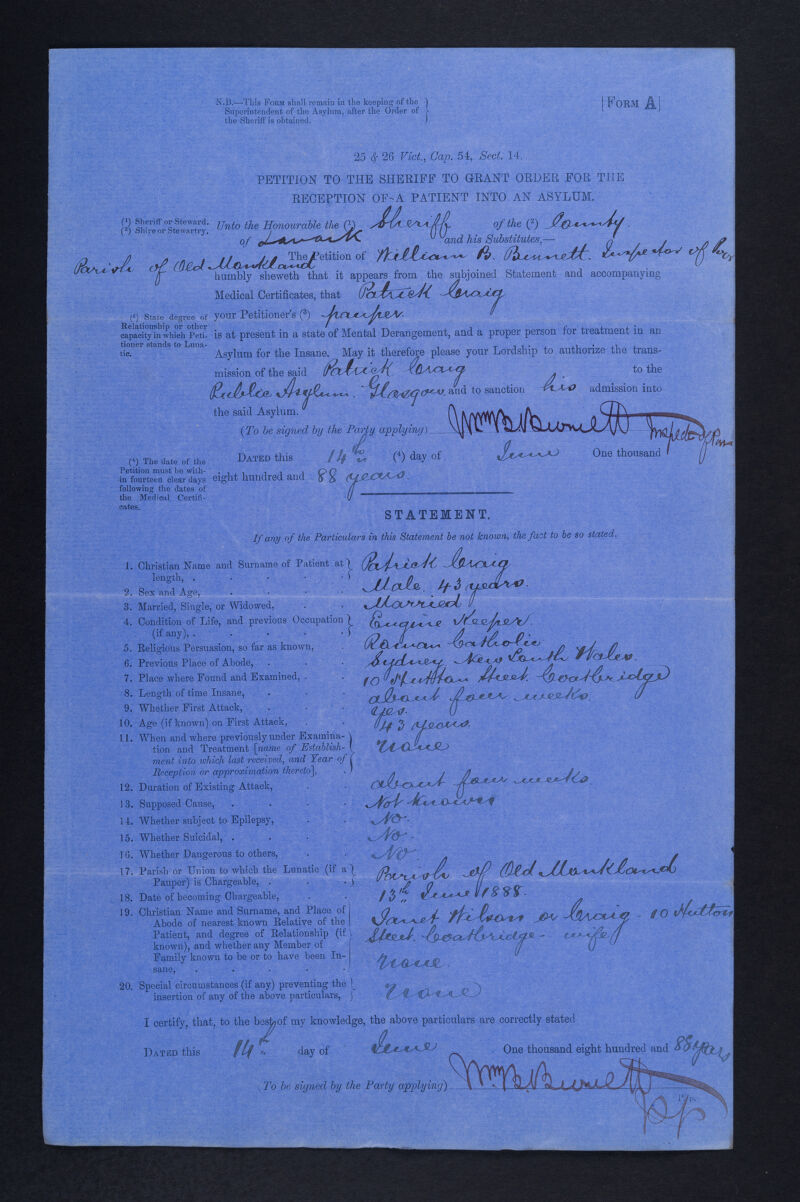 N.B.—This Form shall remain in the keeping of the
Superintendent of the Asylum, after the Order of
the Sheriff is obtained.
[FORM A]
25 & 26 Vict., Cap. 54, Sect. 14.
PETITION TO THE SHERIFF TO GRANT ORDER FOR THE
RECEPTION OF A PATIENT INTO AN ASYLUM.
(1) Sheriff or Steward.
(2) Shire or Stewartry.
Unto the Honourable the (1) Sheriff of the (2) County
of Lanark and his Substitutes,—
The Petition of William B. Bunnett. Inspector of Poor
Parish of Old Monkland
humbly sheweth that it appears from the subjoined Statement and accompanying
Medical Certificates, that Patrick Craig
(3) State degree of
Relationship or other
capacity in which Peti-
tioner stands to Luna-
tic.
your Petitioner's (3) pauper.
is at present in a state of Mental Derangement, and a proper person for treatment in an
Asylum for the Insane. May it therefore please your Lordship to authorize the trans-
mission of the said Patrick Craig to the
Public Asylum. Glasgow and to sanction his admission into
the said Asylum.
(To be signed by the Party applying) Inspector of Poor
(4) The date of the
Petition must be with-
in fourteen clear days
following the dates of
the Medical Certifi-
cates.
DATED this 14th (4) day of June One thousand
eight hundred and 88 years.
STATEMENT.
If any of the Particulars in this Statement be not known, the fact to be so stated.
1. Christian Name and Surname of Patient at length, . Patrick Craig
2. Sex and Age, Male. 43 years.
3. Married, Single, or Widowed, Married
4. Condition of Life, and previous Occupation (if any), . Engine Keeper.
5. Religious Persuasion, so far as known, Roman Catholic
6. Previous Place of Abode, . Sydney New South Wales.
7. Place where Found and Examined, . 10 Hutton Street. Coatbridge
8. Length of time Insane, about four weeks
9. Whether First Attack, Yes.
10. Age (if known) on First Attack, 43 years.
11. When and where previously under Examina-
tion and Treatment [name of Establish-
ment into which last received, and Year of
Reception or approximation thereto], . None
12. Duration of Existing Attack, about four weeks
13. Supposed Cause, . Not known
14. Whether subject to Epilepsy, No.
15. Whether Suicidal, . No.
16. Whether Dangerous to others, No
17. Parish or Union to which the Lunatic (if a
Pauper) is Chargeable, . Parish of Old Monkland
18. Date of becoming Chargeable, 13th June 1888.
19. Christian Name and Surname, and Place of
Abode of nearest known Relative of the
Patient, and degree of Relationship (if
known), and whether any Member of
Family known to be or to have been In-
sane, .
Janet Wilson or Craig - 10 Hutton
Street. Coatbridge - wife
None.
20. Special circumstances (if any) preventing the
insertion of any of the above particulars, None
I certify, that, to the best of my knowledge, the above particulars are correctly stated
DATED this 14th day of June One thousand eight hundred and 88 years
(To be signed by the Party applying)